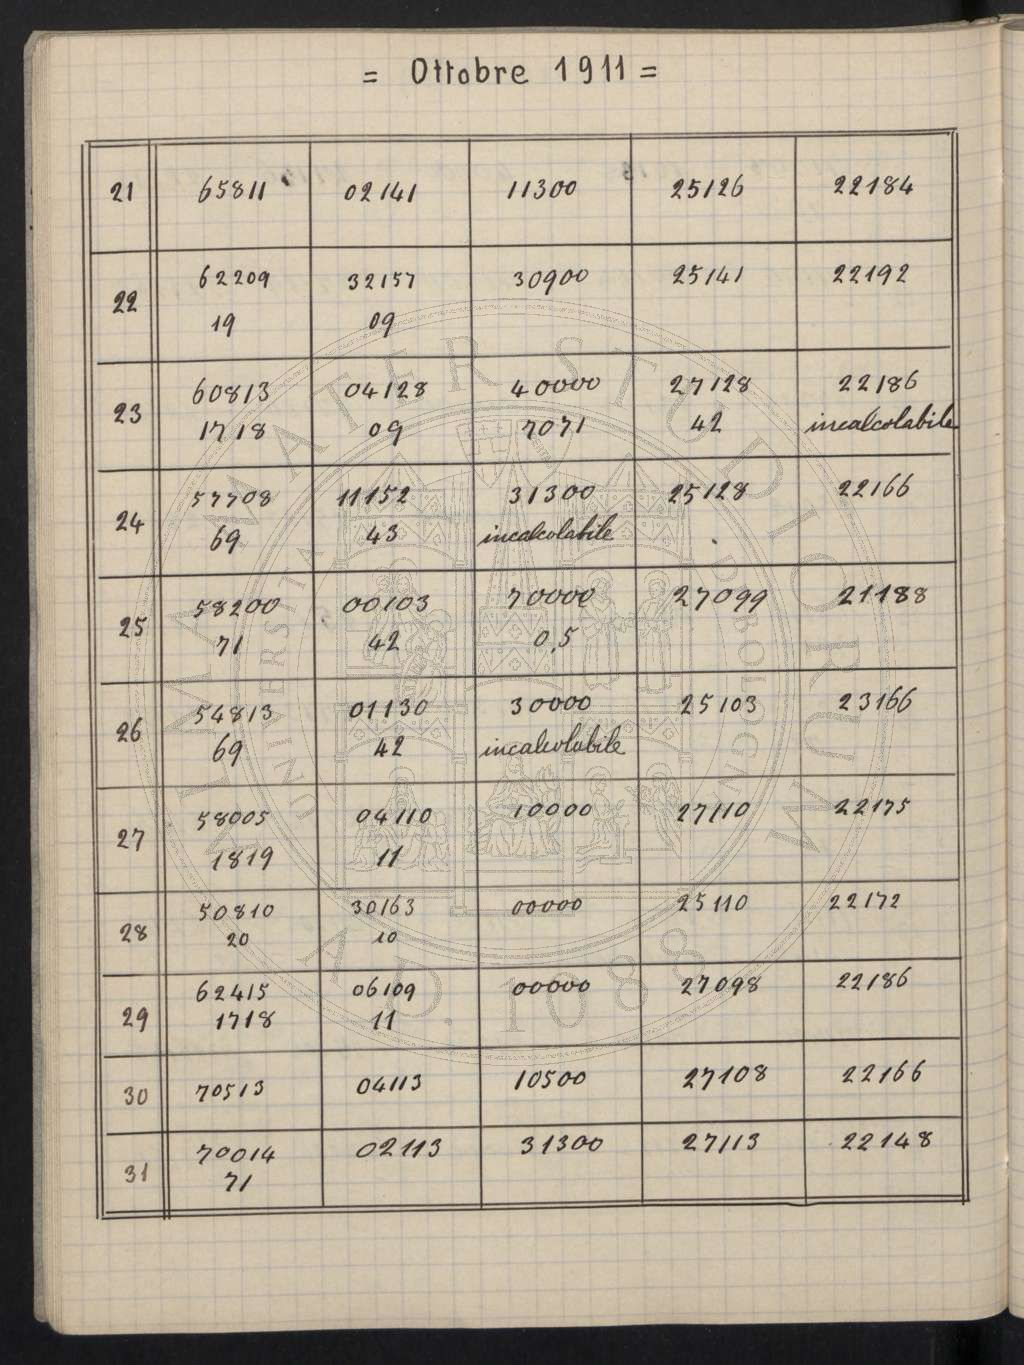 = Ottobre 1911 =
21 65811 02141 11300 25126 22184
22 62209 32157 30900 25141 22192
19 09
23 60813 04128 40000 27128 22186
1718 09 7071 42 incalcolabile
24 57708 11152 31300 25128 22166
69 43 incalcolabile
25 58200 00103 70000 27099 21188
71 42 0,5
26 54813 01130 30000 25103 23166
69 42 incalcolabile
27 58005 04110 10000 27110 22175
1819 11
28 50810 30163 00000 25110 22172
20 10
29 62415 06109 00000 27098 22186
1718 11
30 70513 04113 10500 27108 22166
31 70014 02113 31300 27113 22148
71
ALMA MATER STUDIORUM
UNIVERSITÀ DI BOLOGNA
A.D. 1088